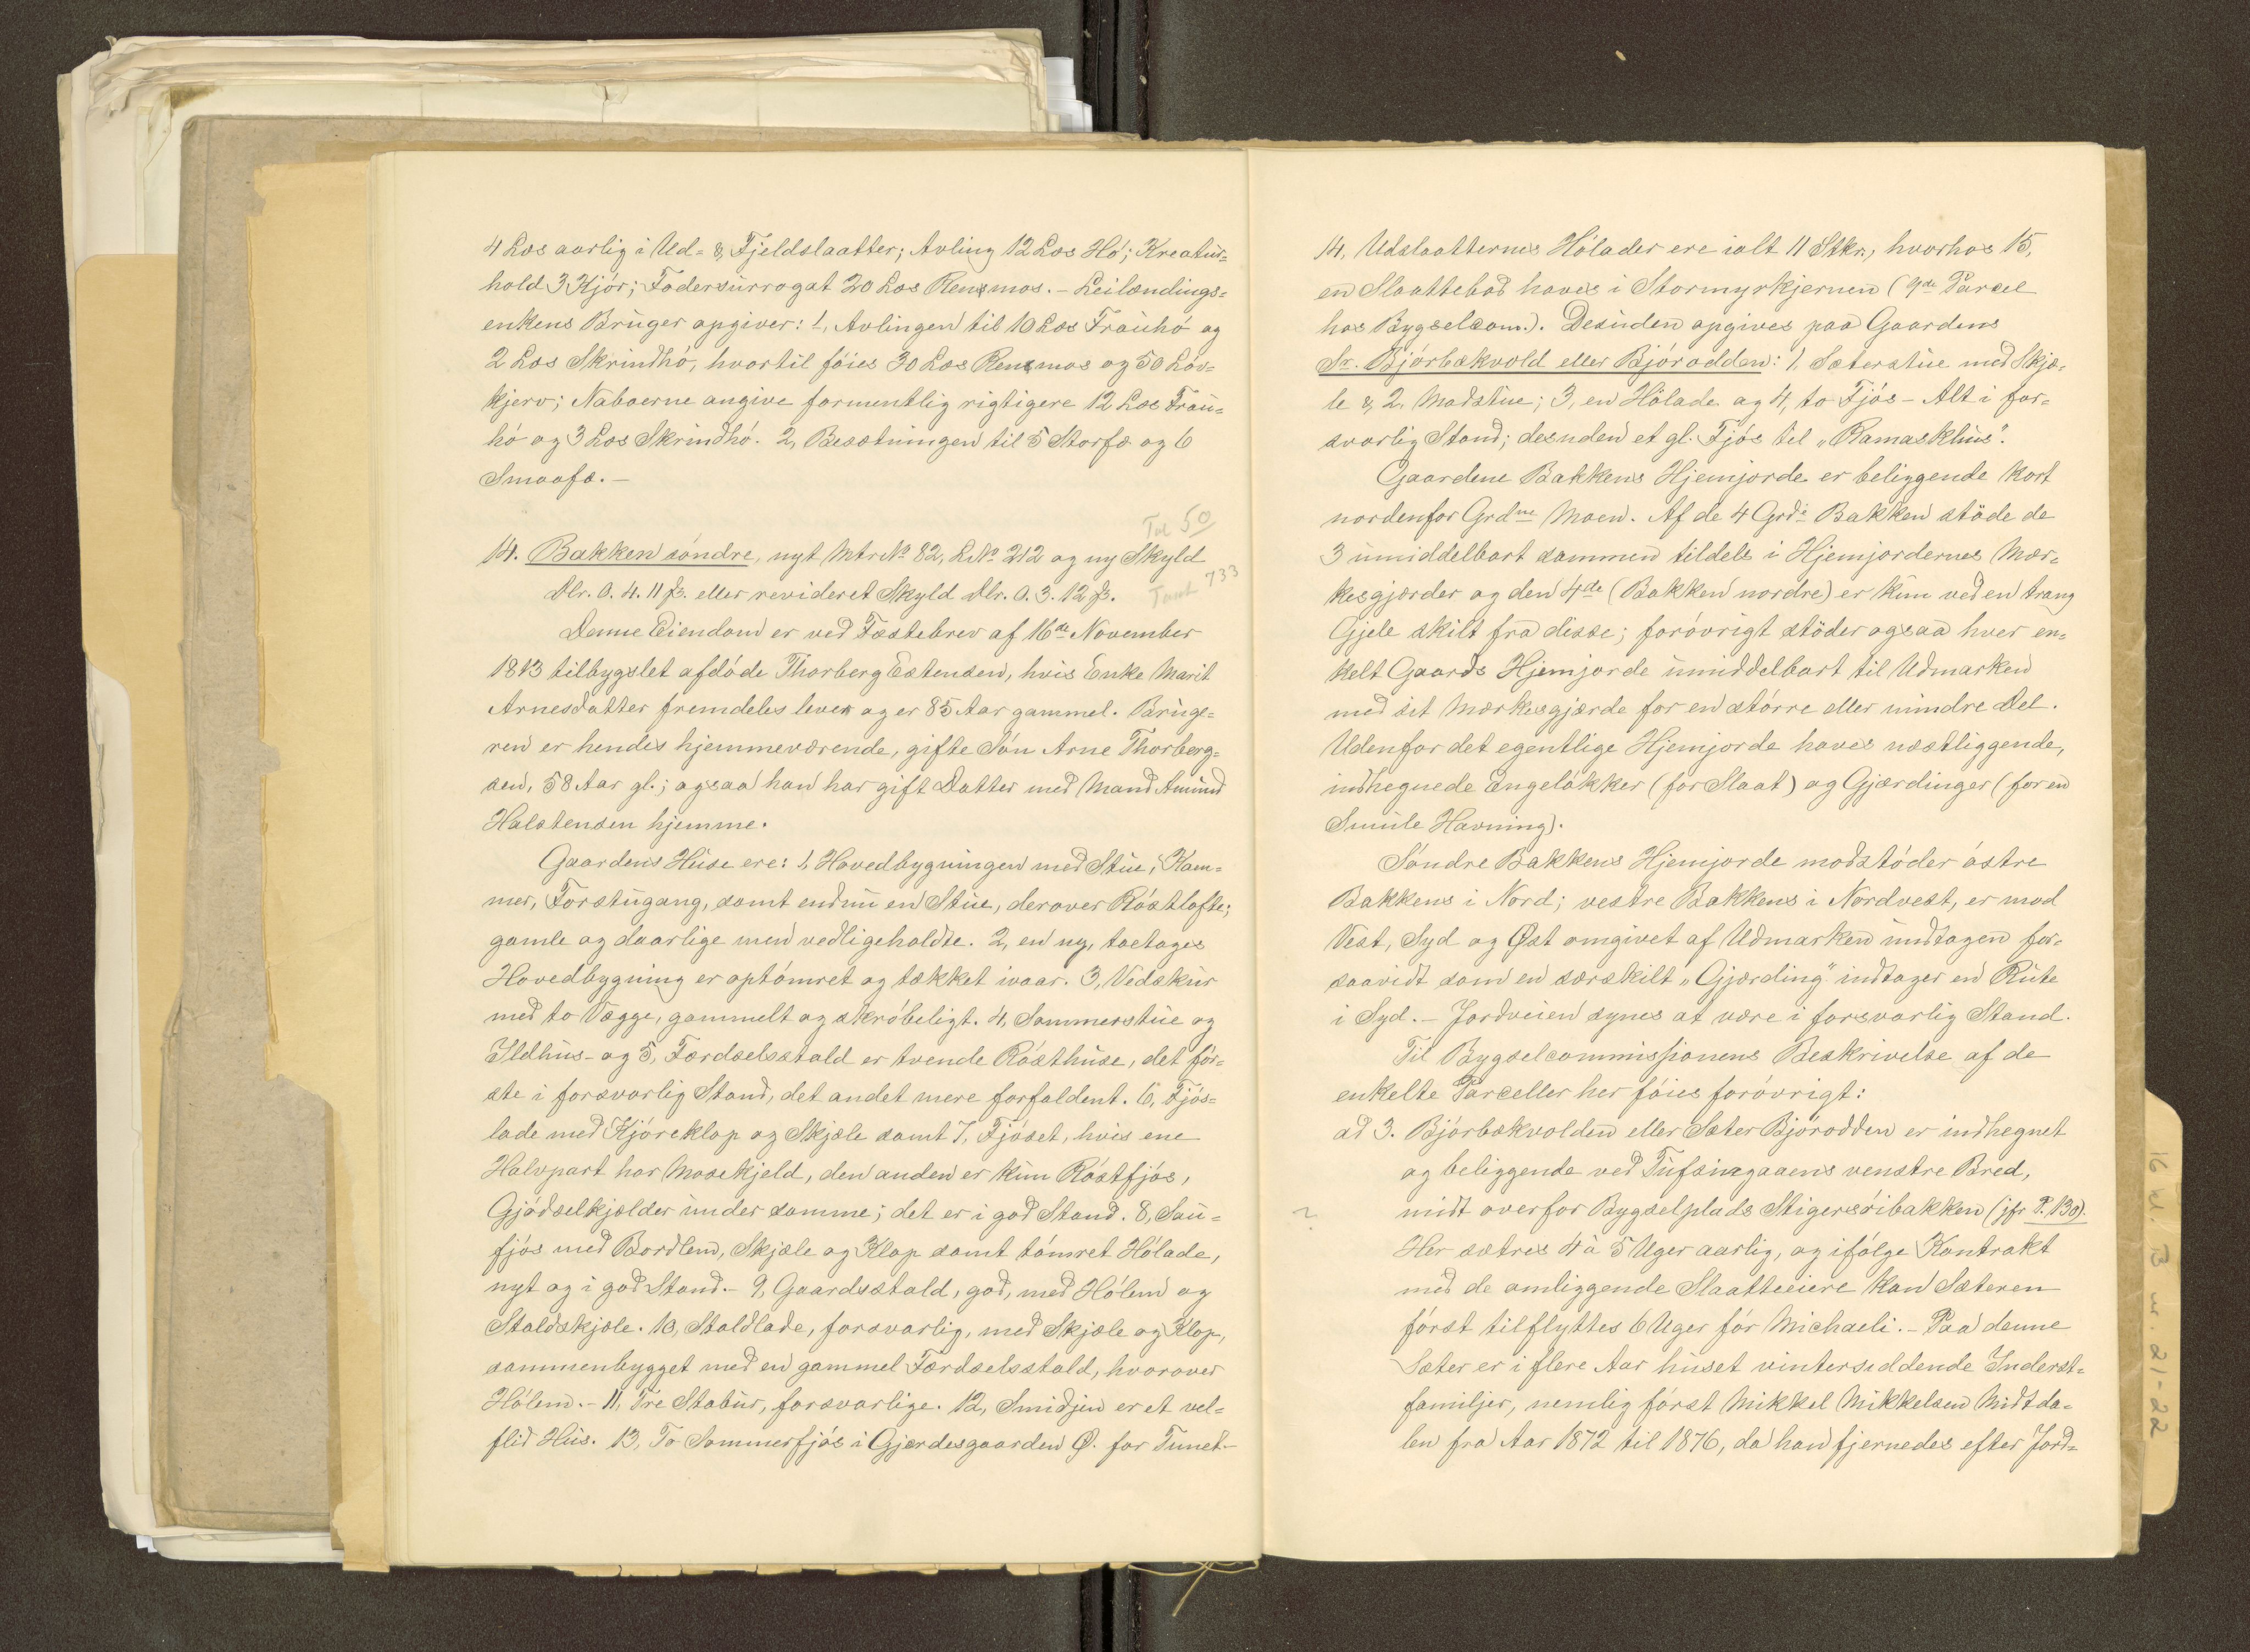 4 Læs aarlig i Ud= & Fjeldslaatter; Avling 12 Læs Hö; Kreatur=
hold 3 Kjör; Födersurrogat 20 Læs Rensmos. – Leilændings=
enkens Bruger opgiver: 1, Avlingen til 10 Læs Frauhö og
2 Læs Skrindhö, hvortil föies 30 Læs Rensmos og 50 Löv=
kjerv; Naboerne angive formentlig rigtigere 12 Læs Frau=
hö og 3 Læs Skrindhö. 2, Besætningen til 5 Storfæ og 6
Smaafæ. –
Tol 50
14. Bakken söndre, nyt Mtr.No 82, L.No 212 og ny Skyld
Dlr. 0. 4. 11 β. eller revideret Skyld Dlr. 0. 3. 12 β.
Tomt 733
Denne Eiendom er ved Fæstebrev af 16de November
1813 tilbygslet afdöde Thorberg Estensen, hvis Enke Marit
Arnesdatter fremdeles lever og er 85 Aar gammel. Bruge=
ren er hendes hjemmeværende, gifte Sön Arne Thorberg=
sen, 58 Aar gl.; ogsaa han har gift Datter med Mand Amund
Halstensen hjemme.
Gaardens Huse ere: 1, Hovedbygningen med Stue, Kam=
mer, Forstugang, samt endnu en Stue, derover Röstlofte;
gamle og daarlige men vedligeholdte. 2, en ny, toetages
Hovedbygning er optömret og tækket ivaar. 3, Vedskur
med to Vægge, gammelt og skröbeligt. 4, Sommerstue og
Ildhus – og 5, Færdselsstald er tvende Rösthuse, det för=
ste i forsvarlig Stand, det andet mere forfaldent. 6, Fjös=
lade med Kjöreklop og Skjæle samt 7, Fjöset, hvis ene
Halvpart har Mosekjeld, den anden er kun Röstfjös,
Gjödselkjælder under samme; det er i god Stand. 8, Sau=
fjös med Bordlem, Skjæle og Klop samt tömret Hölade,
nyt og i god Stand. – 9, Gaardsstald, god, med Hölem og
Staldskjæle. 10, Staldlade, forsvarlig, med Skjæle og Klop,
sammenbygget med en gammel Færdselsstald, hvorover
Hölem. – 11, Tre Stabur, forsvarlige. 12, Smidjen er et vel=
flid Hus. 13, To Sommerfjös i Gjærdesgaarden Ø. for Tunet. –
14, Udslaatternes Hölader ere ialt 11 Stkr., hvorhos 15,
en Slaattebod haves i Stormyrkjernen (9de Parcel
hos Bygselcom.). Desuden opgives paa Gaardens
Sr. Björbækvold eller Björodden: 1, Sæterstue med Skjæ=
le & 2, Madstue; 3, en Hölade og 4, to Fjös – Alt i for=
svarlig Stand; desuden et gl. Fjös til „Ramasklius“.
Gaardene Bakkens Hjemjorde er beliggende kort
nordenfor Grdne Moen. Af de 4 Grde Bakken stöde de
3 umiddelbart sammen tildels i Hjemjordernes Mær=
kesgjærder og den 4de (Bakken nordre) er kun ved en trang
Gjele skilt fra disse; forövrigt stöder ogsaa hver en=
kelt Gaards Hjemjorde umiddelbart til Udmarken
med sit Mærkesgjærde for en större eller mindre Del.
Udenfor det egentlige Hjemjorde haves næstliggende,
indhegnede Engelökker (for Slaat) og Gjærdinger (for en
Smule Havning).
Söndre Bakkens Hjemjorde modstöder östre
Bakkens i Nord; vestre Bakkens i Nordvest, er mod
Vest, Syd og Øst omgivet af Udmarken undtagen for=
saavidt som en særskilt „Gjærding“ indtager en Rute
i Syd. – Jordveien synes at være i forsvarlig Stand.
Til Bygselcommissionens Beskrivelse af de
enkelte Parceller her föies forövrigt:
ad 3. Björbækvolden eller Sæter Björodden er indhegnet
og beliggende ved Tufsingaaens venstre Bred,
? midt overfor Bygselplads Stigersöibakken (jfr P. 130).
Her sætres 4 à 5 Uger aarlig, og ifölge Kontrakt
med de omliggende Slaatteeiere kan Sæteren
först tilflyttes 6 Uger för Michaeli. – Paa denne
Sæter er i flere Aar huset vintersiddende Inderst=
familjer, nemlig först Mikkel Mikkelsen Midtda=
len fra Aar 1872 til 1876, da han fjernedes efter Jord=
16 u. B nr. 21-22